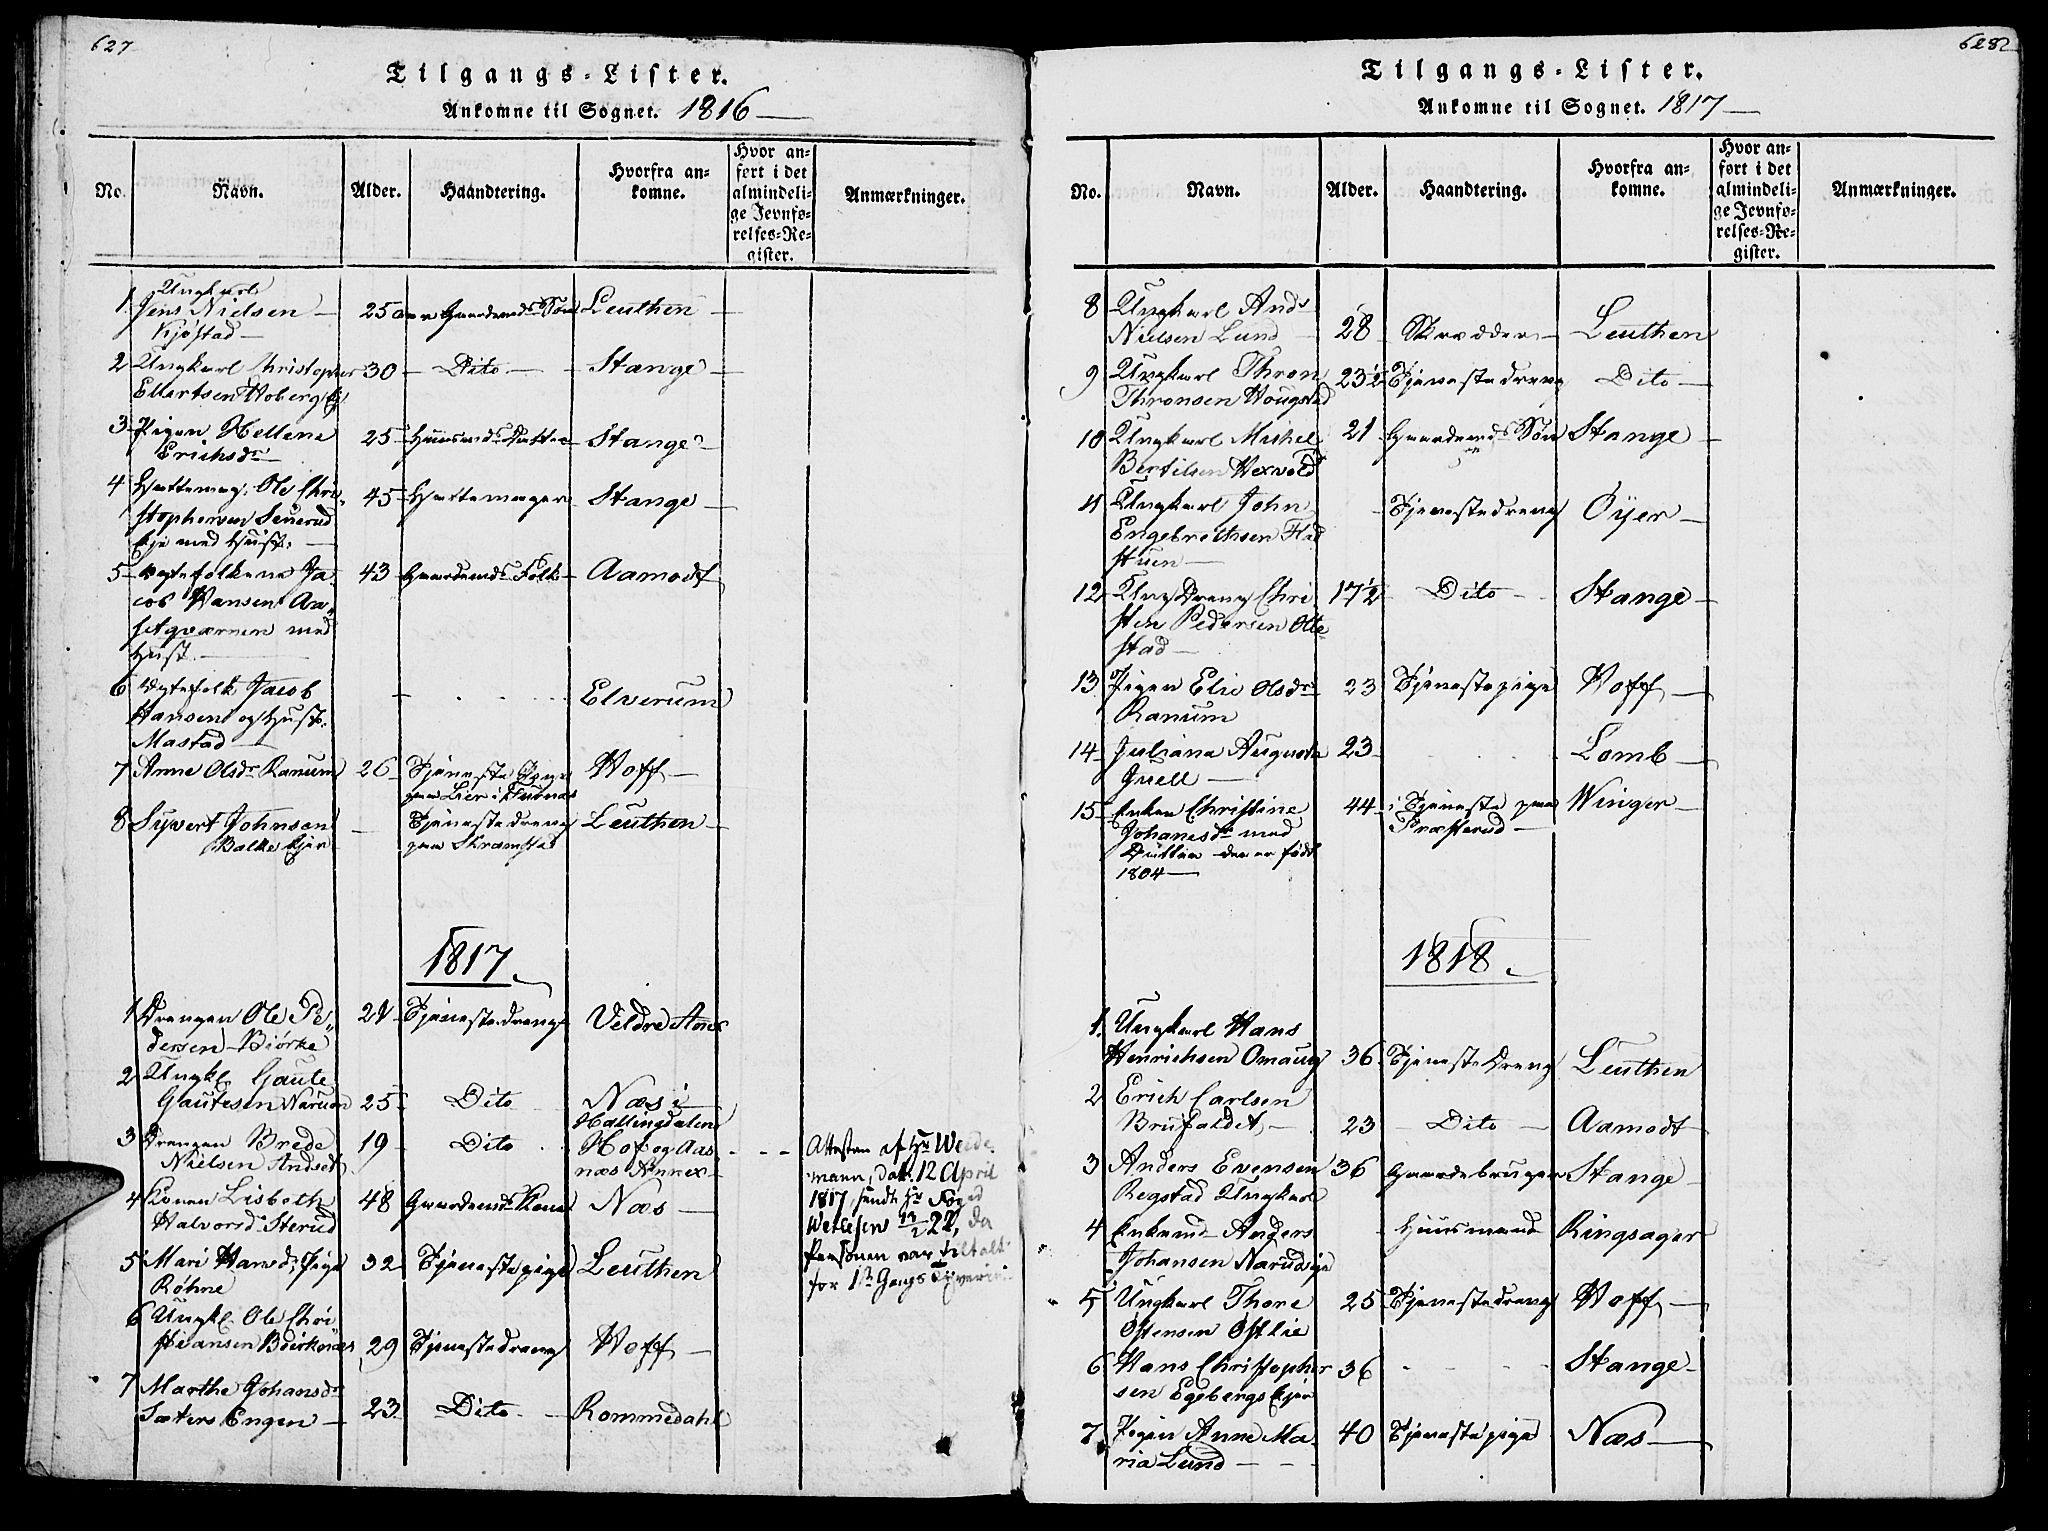 627
Tilgangs-Lister.
Ankomne til Sognet. 1816
No.
Navn.
Alder.
Haandtering.
Hvorfra ankomne.
Hvor anført i det almindelige Jevnførelses-Register.
Anmærkninger.
1 Ungkarl Jens Nielsen Kjøstad 25 Gaardmands Søn Leuthen
2 Ungkarl Christopher Ellertsen Hoberg 30 Dito Stange
3 Pigen Hellene Erichsdr 25 Huusmds Datter Stange
4 Hattemag. Ole Christophersen Seuerud Eje med Hust: 45 Hattemager Stange
5 Ægtefolkene Jacob Hansen Aasetqværnen med Hust. 43 Gaardmds Folk Aamodt
6 Ægtefolk Jacob Hansen og Hust. Mastad Elverum
7 Anne Olsdr Ranum 26 Tjeneste Pige paa Lier Hoff
8 Syvert Johnsen Balke Ejer Tjenestedreng paa Skramstad Leuthen
1817
1 Drengen Ole Pedersen Biørke 21 Tjenestedreng Veldre
2 Ungk. Gaute Gautesen Naruon 25 Dito Næs i Hallingdalen
3 Drengen Brede Nielsen Andset 19 Dito Hof og Aasnæs Annex
Attesten af Hr Weidemann, dat. 12 April 1817 sendt Hr Foged Wetlesen 22, da Personen var tiltalt for 1ste Gangs Tyverie.
4 Konen Lisbeth Halvorsd. Sterud 48 Gaardmds Kone Næs
5 Mari Hansd: Pige Røhne 32 Tjenestepige Leuthen
6 Ungk. Ole Christiansen Beirknæs 29 Tjenestedreng Hoff
7 Marthe Johansdr Sæters Engen 23 Dito Rommedahl
628
Tilgangs-Lister.
Ankomne til Sognet. 1817
No.
Navn.
Alder.
Haandtering.
Hvorfra ankomne.
Hvor anført i det almindelige Jevnførelses-Register.
Anmærkninger.
8 Ungkarl Ands Nielsen Lund 28 Skrædder Leuthen
9 Ungkarl Thron Thronsen Hougstad 23½ Tjenestedreng Dito
10 Ungkarl Mickel Bertilsen Hexvold 21 Gaardmds Søn Stange
11 Ungkarl John Engebrethsen Fladstuen Tjenestedreng Öÿer
12 Ung Dreng Christen Pedersen Ottestad 17½ Dito Stange
13 Pigen Elie Olsdr Ranum 23 Tjenestepige Hoff
14 Juliana Augusta Quell 23 Lomb
15 Enken Christine Johanesdr med Datter der er født 1804 44 i Tjeneste paa Præsterud Winger
1818
1. Ungkarl Hans Henrichsen Omaug 36 TjenesteDreng Leuthen
2 Erich Carlsen Brufaldet 23 Dito Aamodt
3 Anders Evensen Regstad Ungkarl 36 Gaardbruger Stange
4 Enkemd Anders Johansen Narudseje Huusmand Ringsager
5 Ungkarl Thore Östensen Östlie 25 Tjenestedreng Hoff
6 Hans Christophersen Egebergs Ejer 36 Stange
7 Pigen Anne Maria Lund 40 Tjenestepige Næs